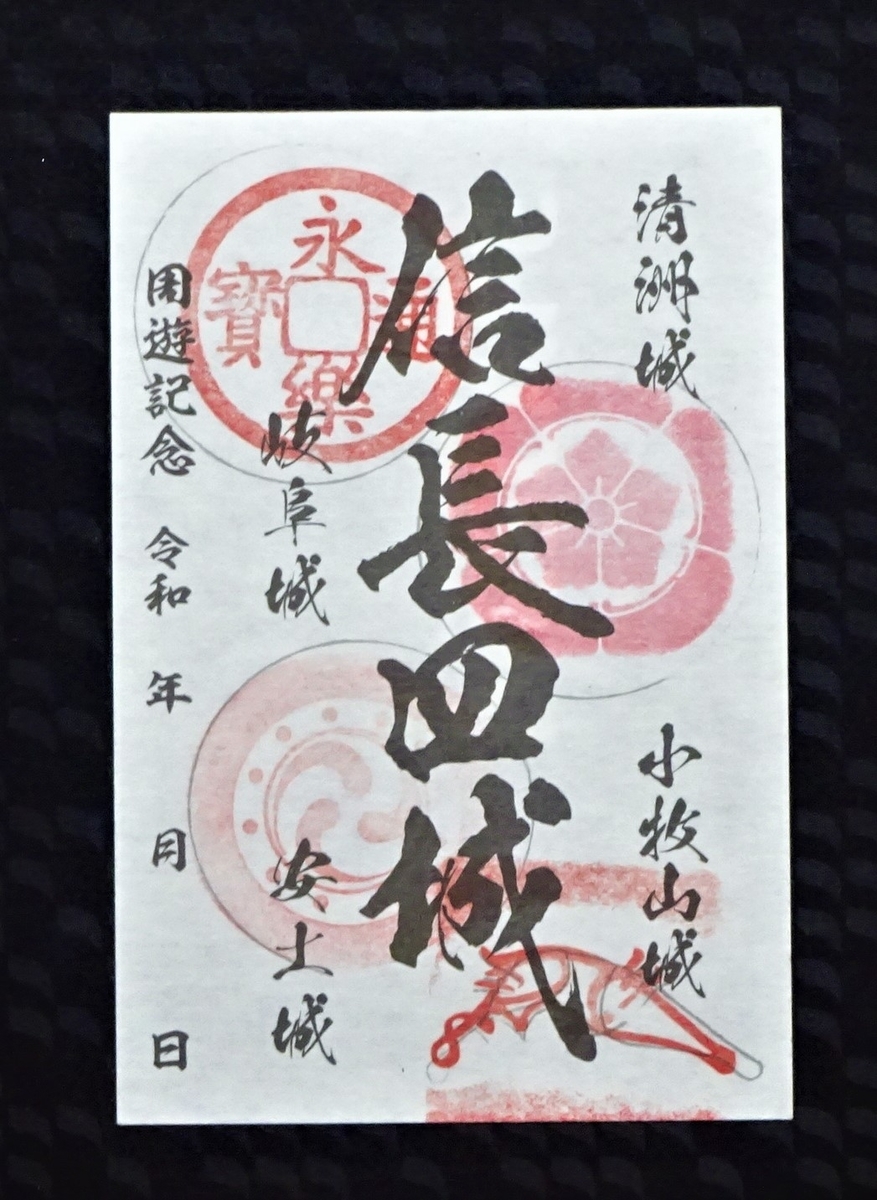 清洲城
小牧山城
信長四城
岐阜城
安土城
周遊記念 令和 年 月 日
永樂通寶